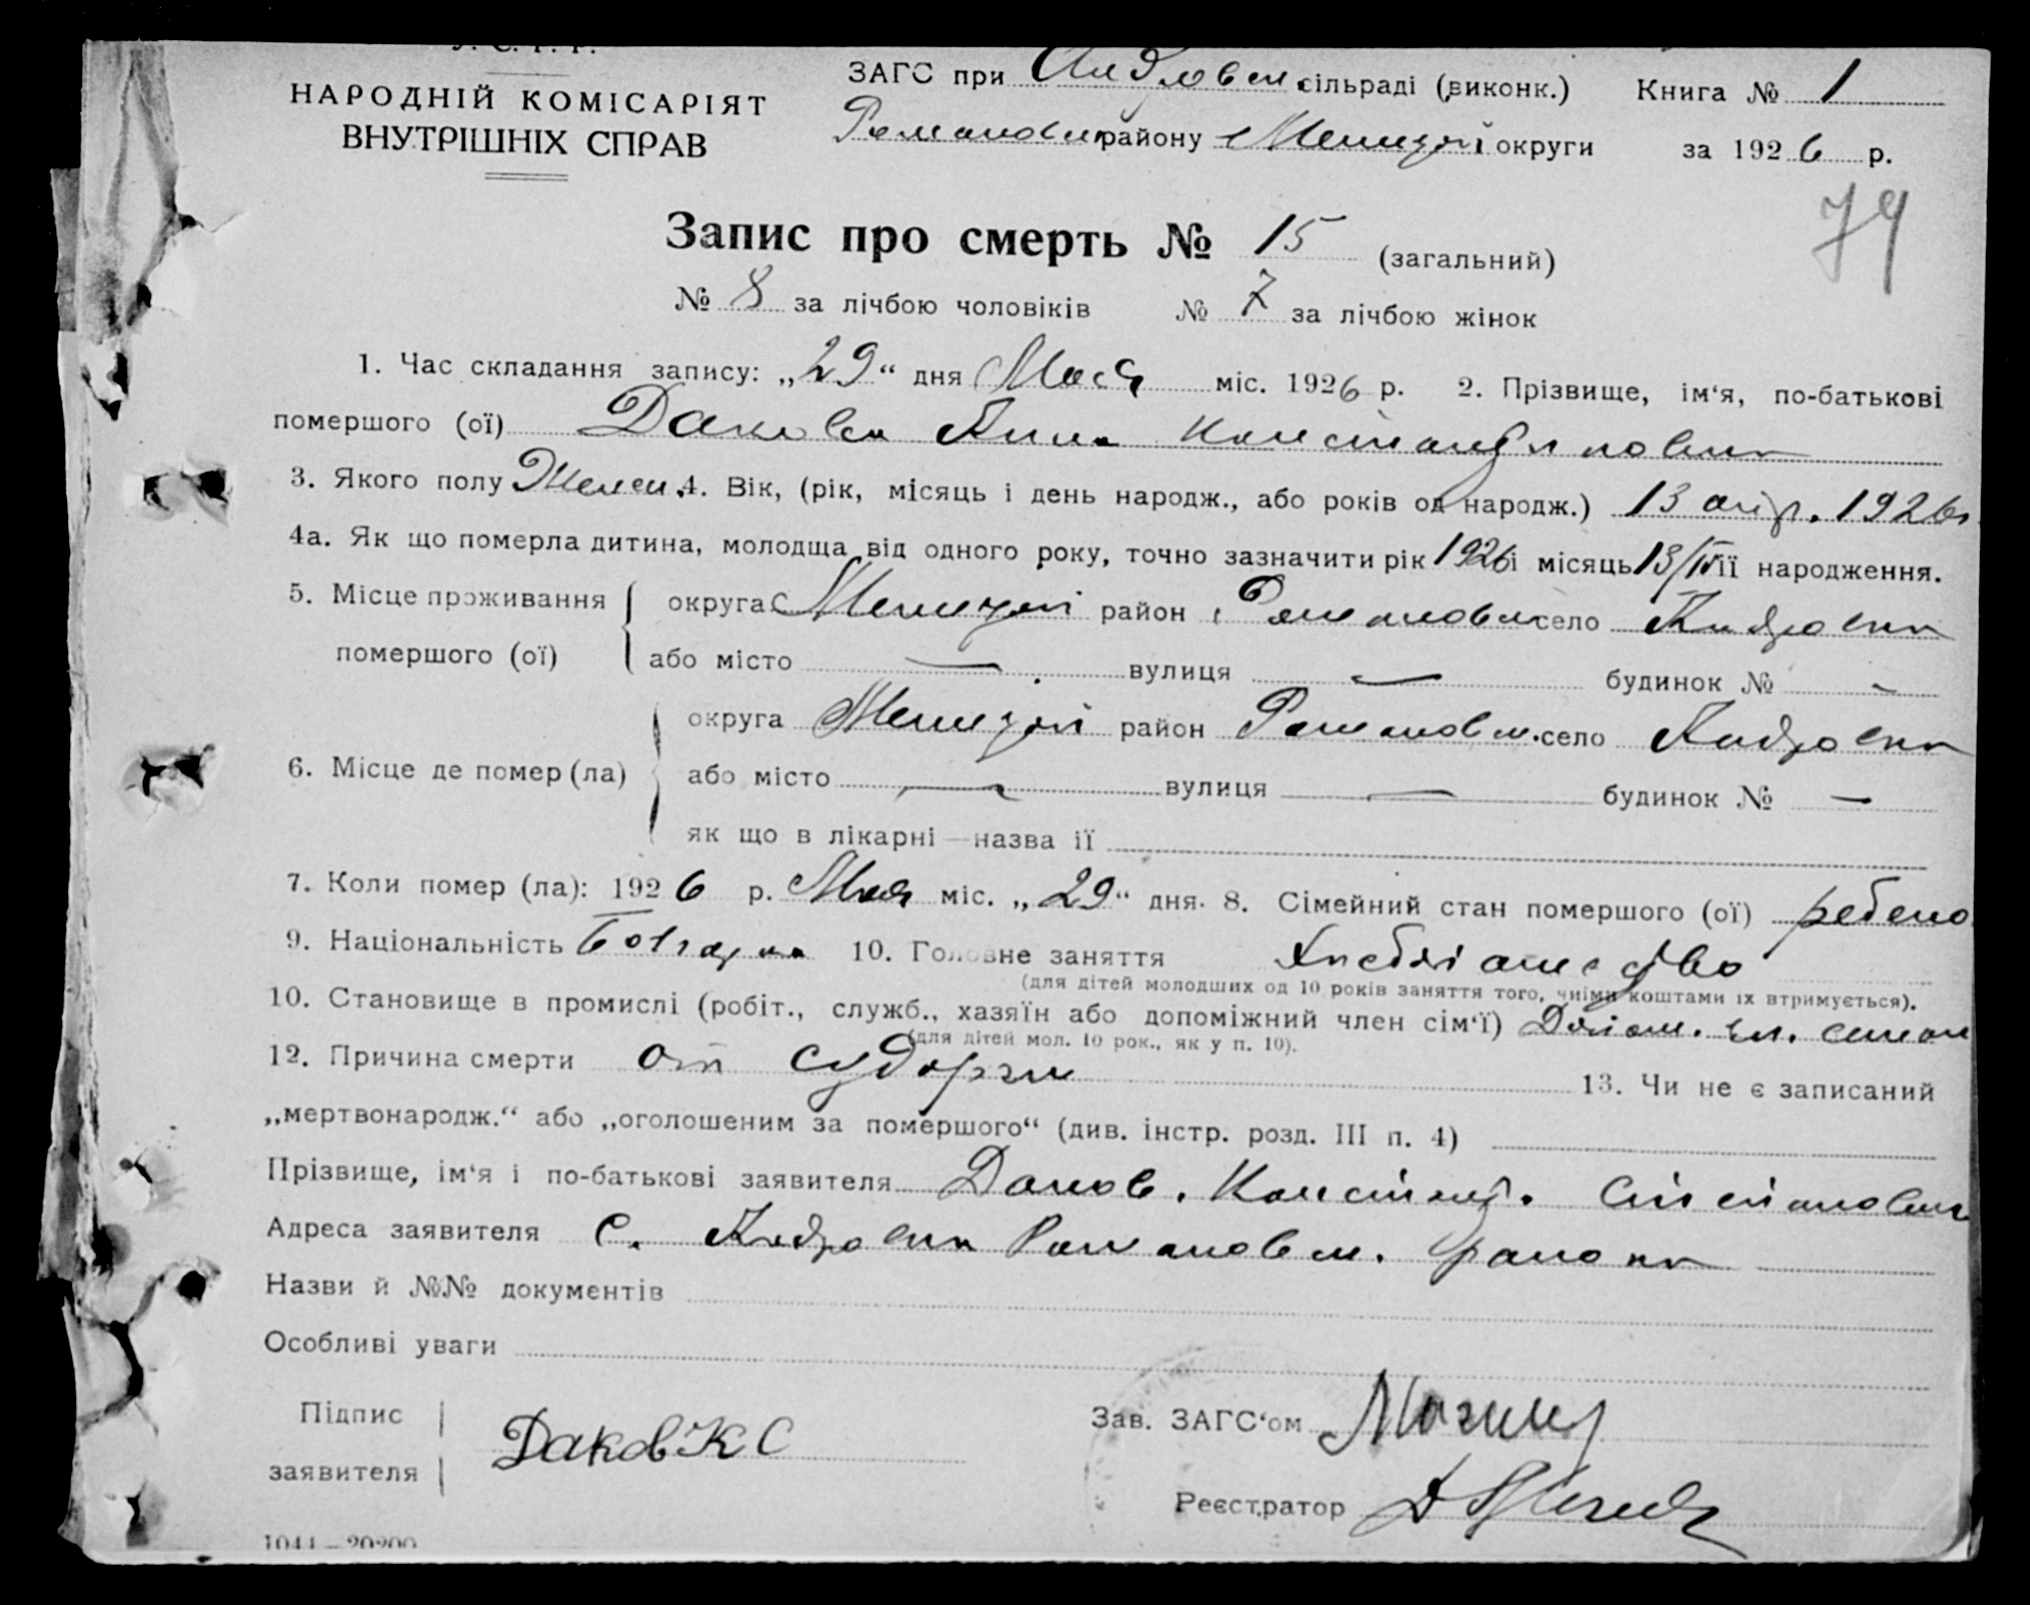 У. С. Р. Р.
НАРОДНІЙ КОМІСАРІЯТ
ВНУТРІШНІХ СПРАВ
ЗАГС при Андровск. сільраді (виконк.) Книга № 1
Романовск району Мелитоп округи за 1926 р.
79
Запис про смерть № 15 (загальний)
№ 8 за лічбою чоловіків № 7 за лічбою жінок
1. Час складання запису: „29“ дня Мая міс. 1926 р. 2. Прізвище, ім‘я, по-батькові
помершого (ої) Дакова Анна Константиновна
3. Якого полу Женск. 4. Вік, (рік, місяць і день народж., або років од народж.) 13 апр. 1926 г
4а. Як що померла дитина, молодща від одного року, точно зазначити рік 1926 і місяць 13/IV її народження.
5. Місце проживання округа Мелитоп район Романовск село Андровка
помершого (ої) або місто — вулиця — будинок № -
округа Мелитоп район Романовск. село Андровка
6. Місце де помер (ла) або місто — вулиця — будинок № —
як що в лікарні — назва її
7. Коли помер (ла): 1926 р. Мая міс. „29“ дня. 8. Сімейний стан помершого (ої) ребено
9. Національність Болгарка 10. Головне заняття Хлебопашество
(для дітей молодших од 10 років заняття того, чиїми коштами їх втримується).
10. Становище в промислі (робіт., служб., хазяїн або допоміжний член сім‘ї) чл. семьи
(для дітей мол. 10 рок., як у п. 10).
12. Причина смерти От судорги 13. Чи не є записаний
„мертвонародж.“ або „оголошеним за помершого“ (див. інстр. розд. III п. 4)
Прізвище, ім‘я і по-батькові заявителя Даков. Констант. Степанович
Адреса заявителя с. Андровка Романовск. района
Назви й №№ документів
Особливі уваги
Підпис
заявителя Даков К С
Зав. ЗАГС‘ом
Реєстратор
1044—20200